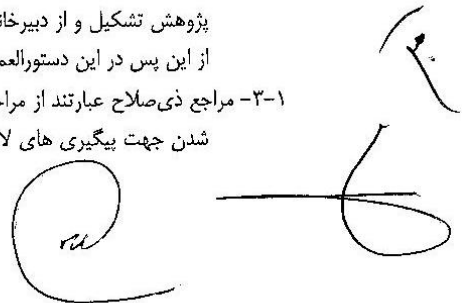 پژوهش تشکیل و از دبیرخان
از این پس در این دستورالعم
۳-۱- مراجع ذی‌صلاح عبارتند از مراج
شدن جهت پیگیری های لا